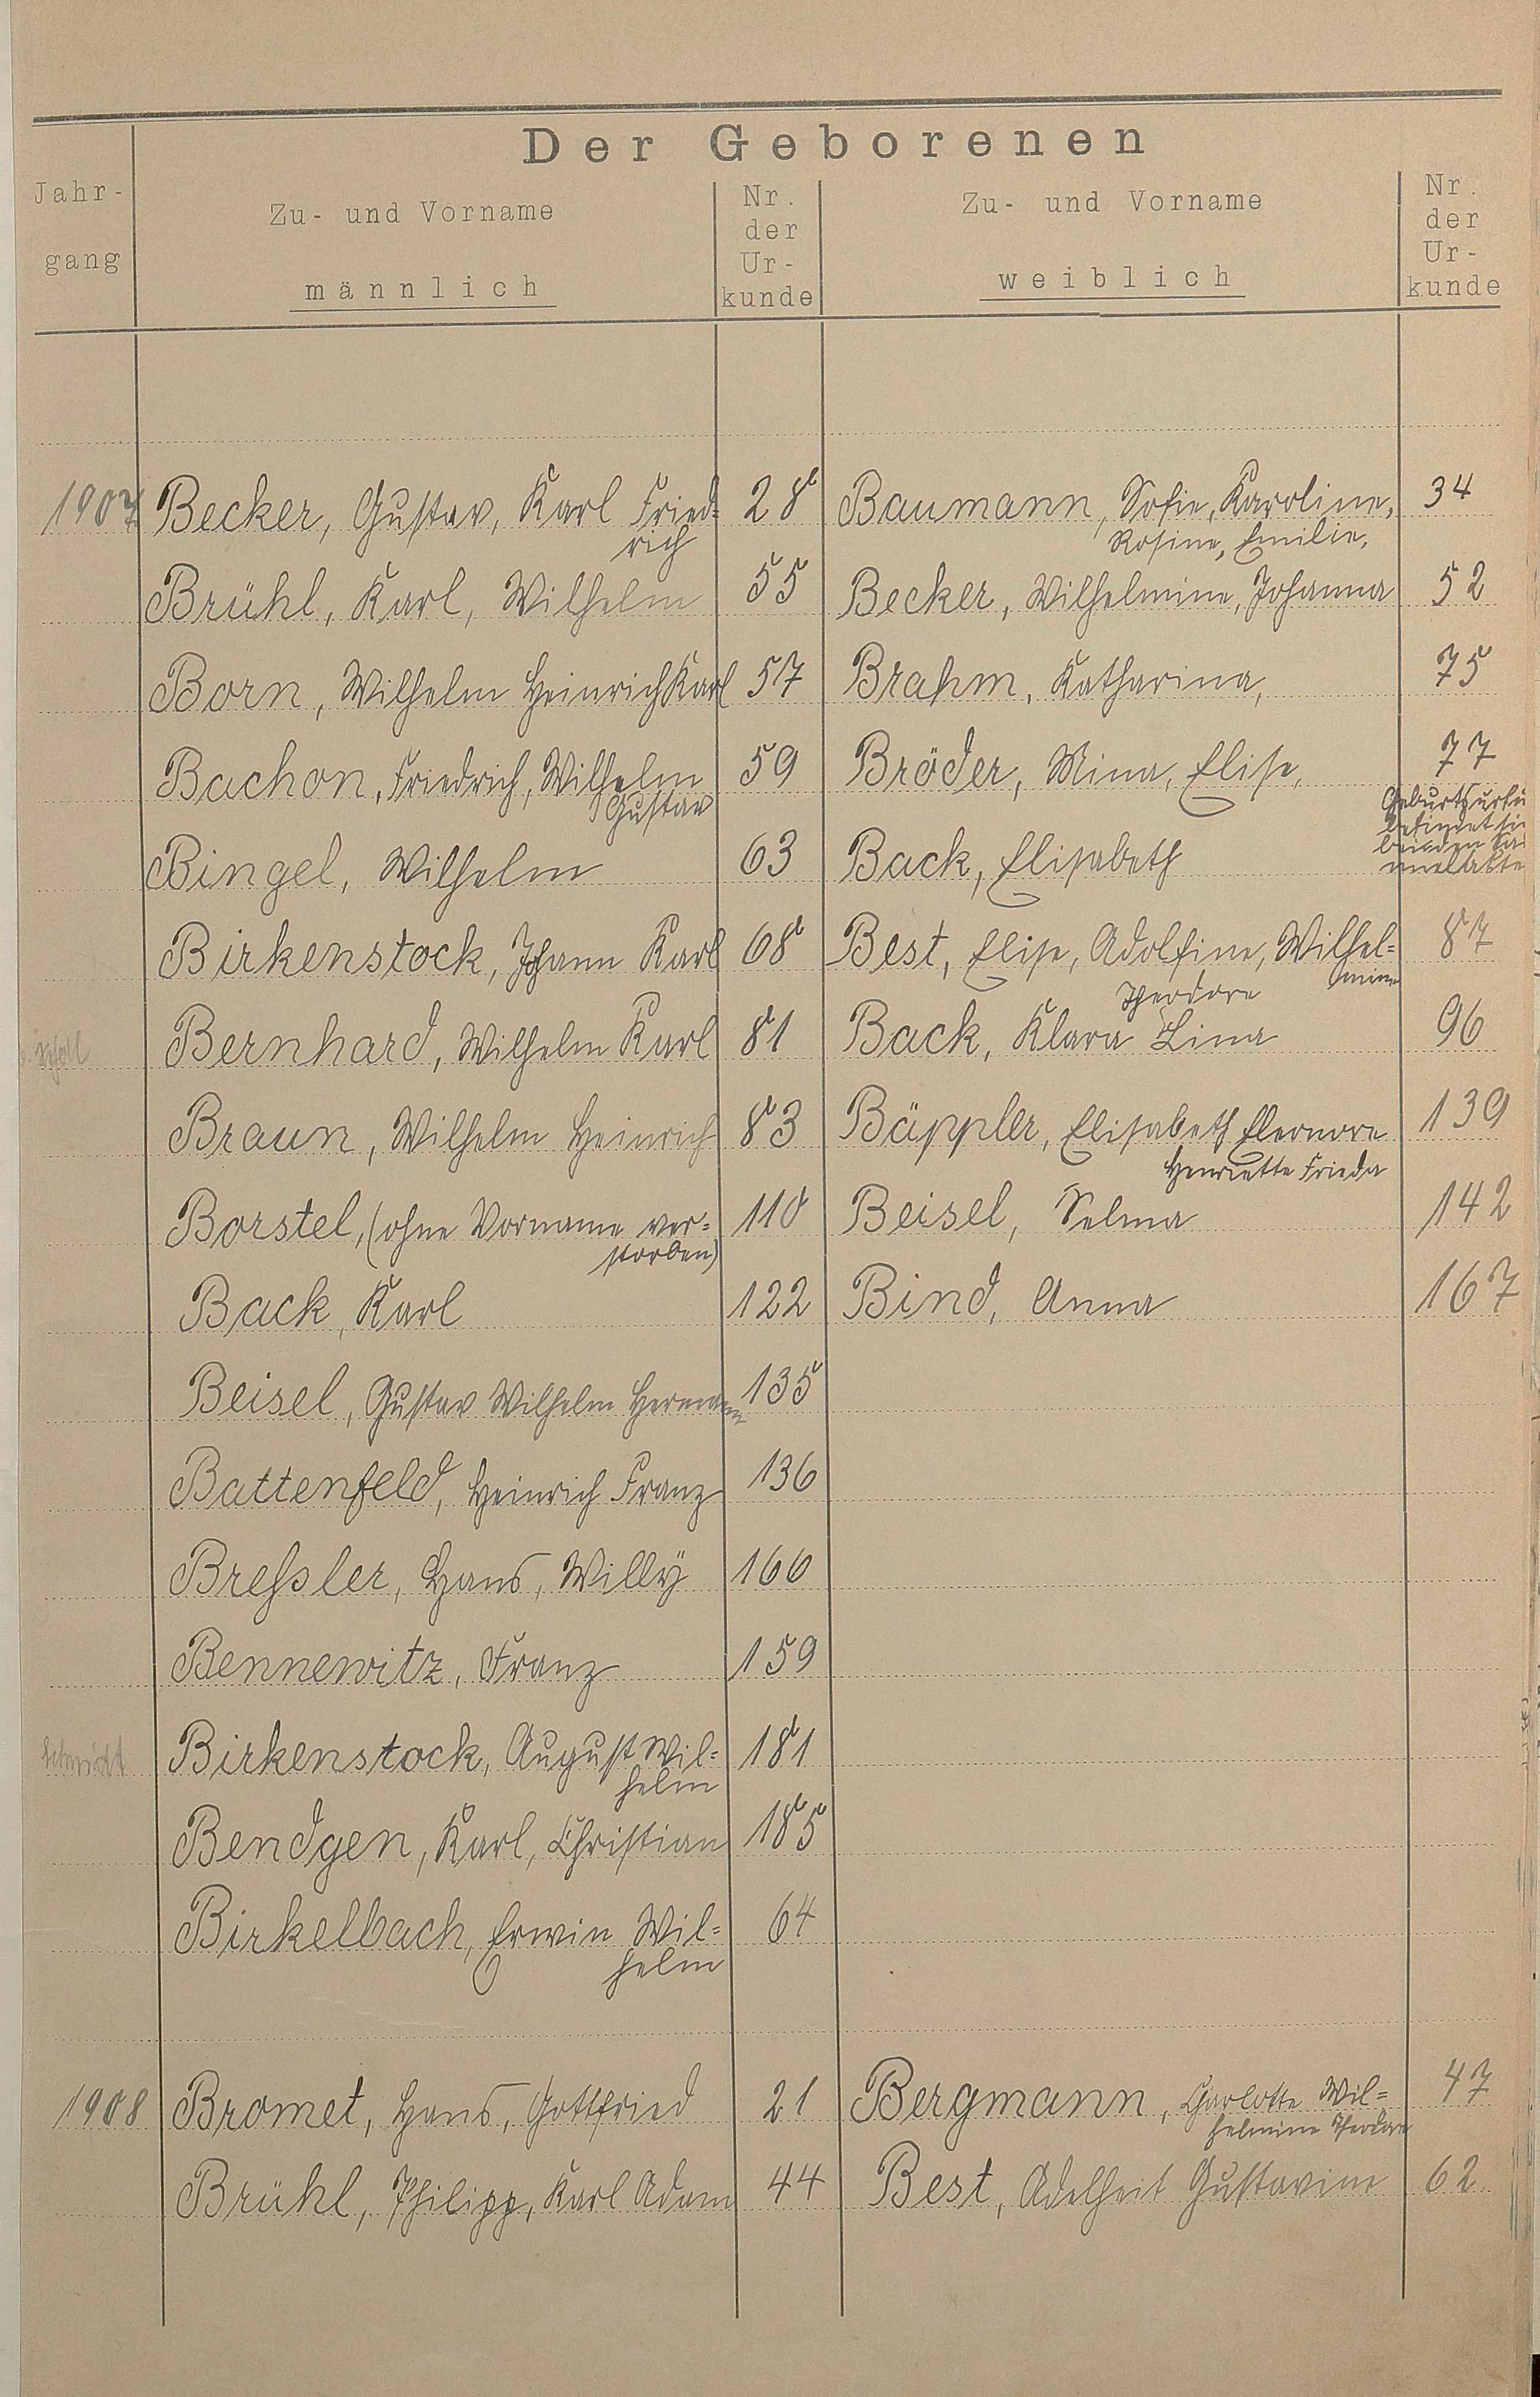 Der Geborenen
Jahr-
gang
Zu- und Vorname
männlich
Nr.
der
Ur-
kunde
Zu- und Vorname
weiblich
Nr.
der
Ur-
kunde
1907 Becker, Gustav, Karl Fried= 28 Baumann, Sofie, Karoline, 34
rich Rosine, Emilie,
Brühl, Karl, Wilhelm 55 Becker, Wilhelmine, Johanna 52
Born, Wilhelm Heinrich Karl 57 Brahm, Katharina, 75
Bachon, Friedrich, Wilhelm 59 Bröder, Mina, Elise, 77
Gustav Geburtsurku
befindet si
bei den Sa
Bingel, Wilhelm 63 Back, Elisabeth melakte
Birkenstock, Johann Karl 68 Best, Elise, Adolfine, Wilhel= 87
mine
Theodore
Bernhard, Wilhelm Karl 81 Back, Klara Lina 96
Braun, Wilhelm Heinrich 83 Bäppler, Elisabeth Eleonore 139
Henriette Frieda
Borstel, (ohne Vorname ver= 110 Beisel, Selma 142
storben)
Back, Karl 122 Bind, Anna 167
Beisel, Gustav Wilhelm Hermann 135
Battenfeld, Heinrich Franz 136
Breßler, Hans, Willÿ 160
Bennewitz, Franz 159
Schmidt Birkenstock, August Wil= 181
helm
Bendgen, Karl, Christian 185
Birkelbach, Erwin Wil= 64
helm
1908 Bromet, Hans, Gottfried 21 Bergmann, Charlotte Wil= 47
helmine Theodore
Brühl, Philipp, Karl Adam 44 Best, Adelheit Gustavine 62